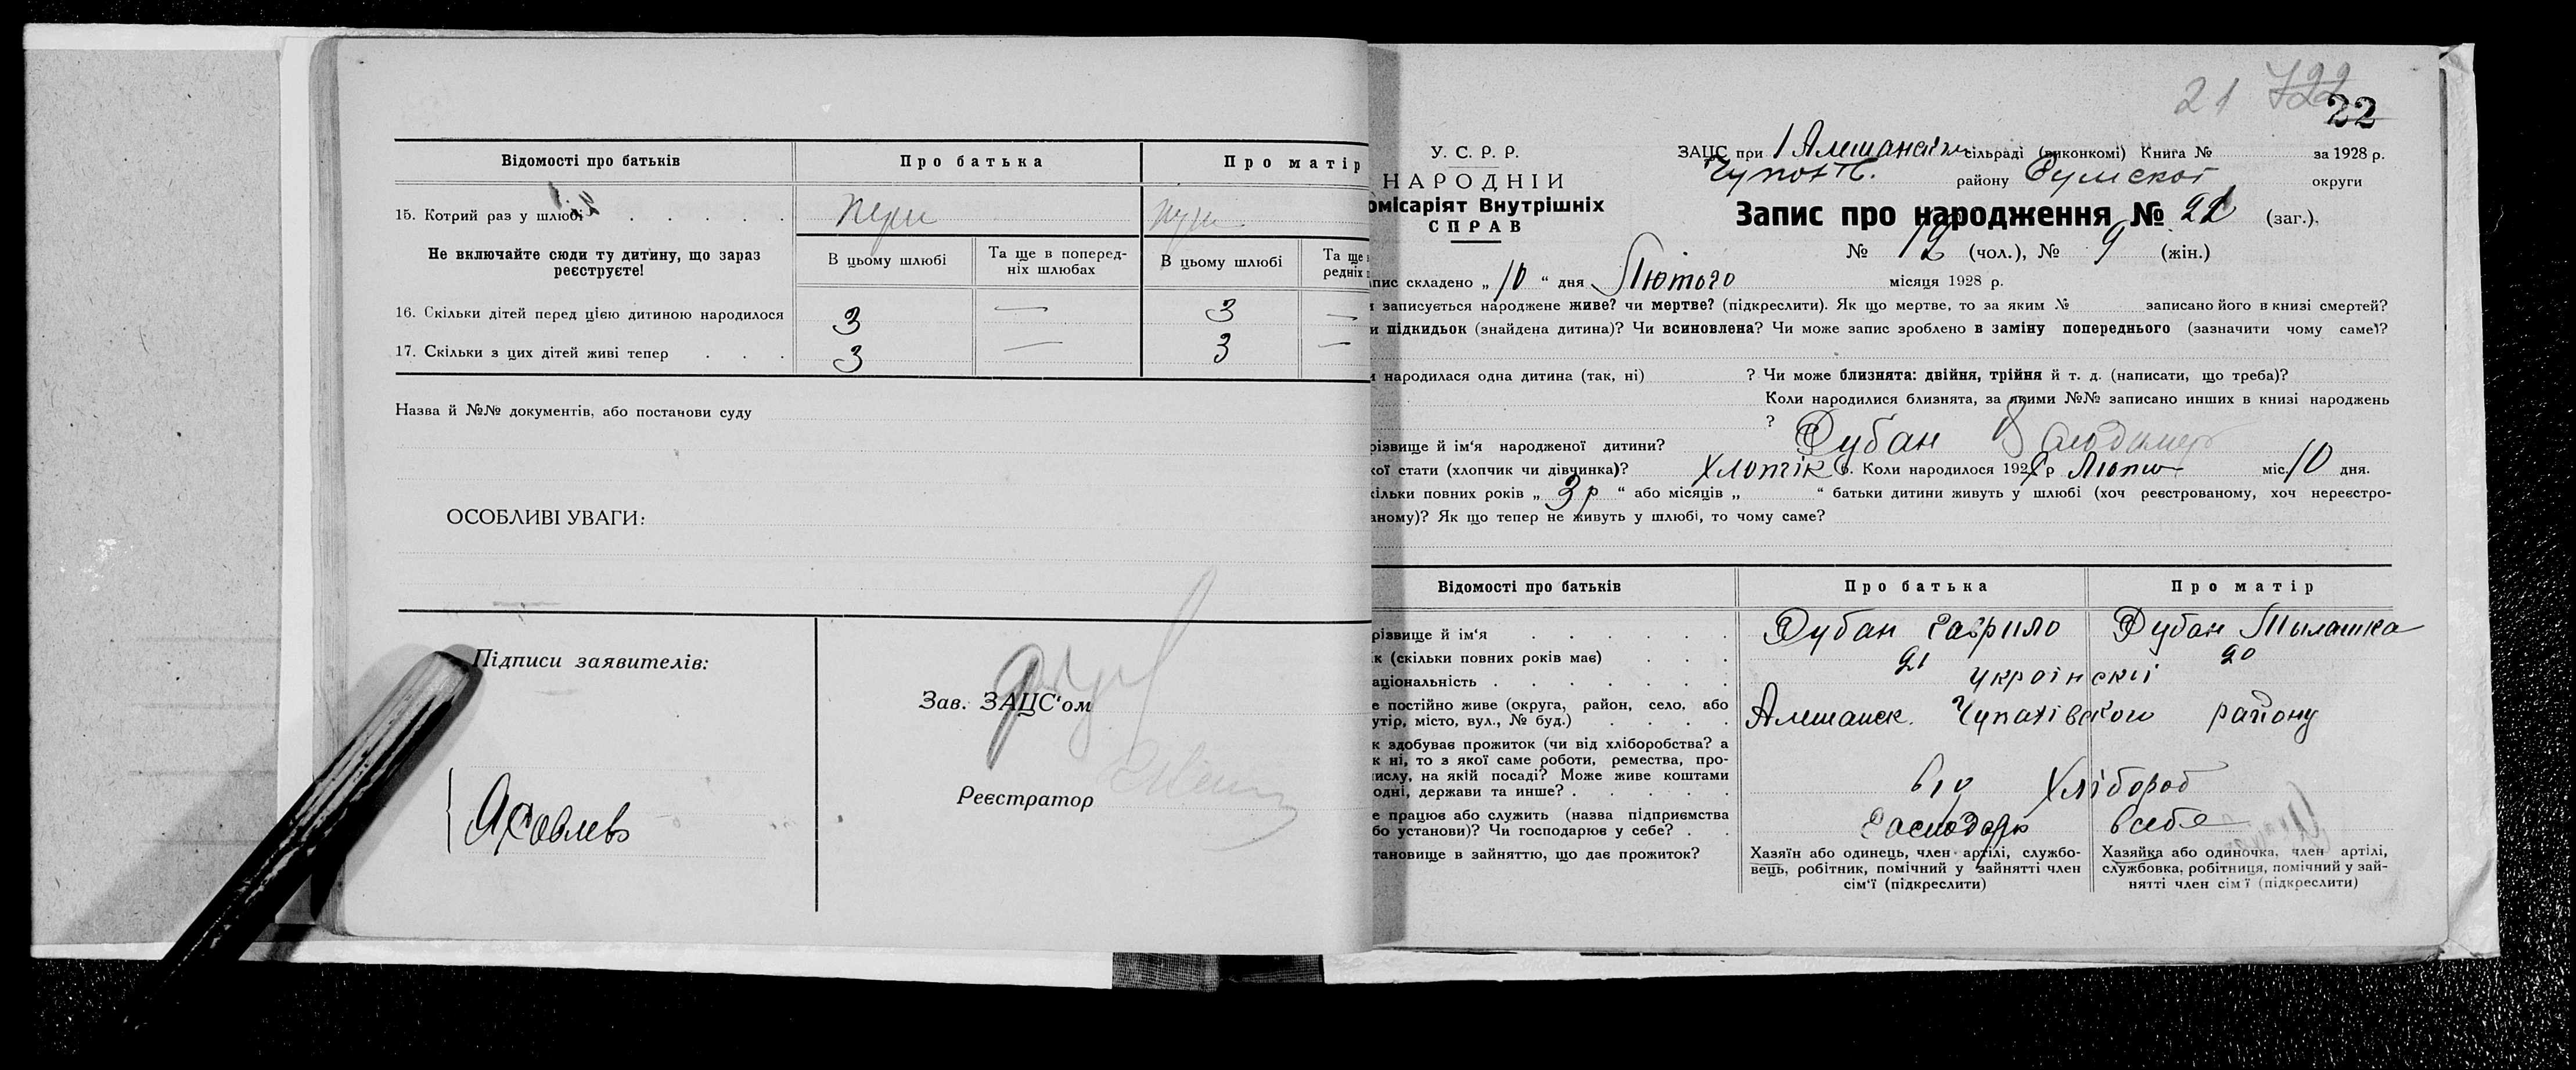 Відомості про батьків
Про батька
Про матір
15. Котрий раз у шлюбі
Не включайте сюди ту дитину, що зараз реєструєте!
В цьому шлюбі
Та ще в поперед-
ніх шлюбах
В цьому шлюбі
16. Скільки дітей перед цією дитиною народилося 3 — 3 —
17. Скільки з цих дітей живі тепер 3 — 3 —
Назва й №№ документів, або постанови суду
ОСОБЛИВІ УВАГИ:
Підписи заявителів:
Яковлев
Зав. ЗАЦС'ом
Реєстратор
21 722
22
У. С. Р. Р.
НАРОДНІЙ
омісаріят Внутрішніх
СПРАВ
ЗАЦС при сільраді (виконкомі) Книга № за 1928 р.
району Сумской округи
Запис про народження № 22 (заг.).
№ 12 (чол.), № 9 (жін.)
пис складено „ 10 “ дня Лютого місяця 1928 р.
и записується народжене живе? чи мертве? (підкреслити). Як що мертве, то за яким № записано його в книзі смертей?
и підкидьок (знайдена дитина)? Чи всиновлена? Чи може запис зроблено в заміну попереднього (зазначити чому саме)?
и народилася одна дитина (так, ні) ? Чи може близнята: двійня, трійня й т. д. (написати, що треба)?
Коли народилися близнята, за якими №№ записано инших в книзі народжень
?
різвище й ім'я народженої дитини? Дубан Володимер
кої стати (хлопчик чи дівчинка)? Хлопчік 6. Коли народилося 1928 р міс. 10 дня.
кільки повних років „ 3 р “ або місяців „ “ батьки дитини живуть у шлюбі (хоч реєстрованому, хоч нереєстро-
аному)? Як що тепер не живуть у шлюбі, то чому саме?
Відомості про батьків
Про батька
Про матір
різвище й ім'я Дубан Гаврило Дубан Мылашка
к (скільки повних років має) 21 20
аціональність украінскіі
е постійно живе (округа, район, село, або
утір, місто, вул., № буд.) Алешанск. Чупахівского району
к здобуває прожиток (чи від хліборобства? а
к ні, то з якої саме роботи, ремества, про-
мислу, на якій посаді? Може живе коштами
одні, держави та инше? від Хлібороб
е працює або служить (назва підприємства
бо установи)? Чи господарює у себе? Господарь всебе
тановище в зайняттю, що дає прожиток?
Хазяїн або одинець, член артілі, службо-
вець, робітник, помічний у зайнятті член
сім'ї (підкреслити)
Хазяйка або одиночка, член артілі,
службовка, робітниця, помічний у зай-
нятті член сім'ї (підкреслити)